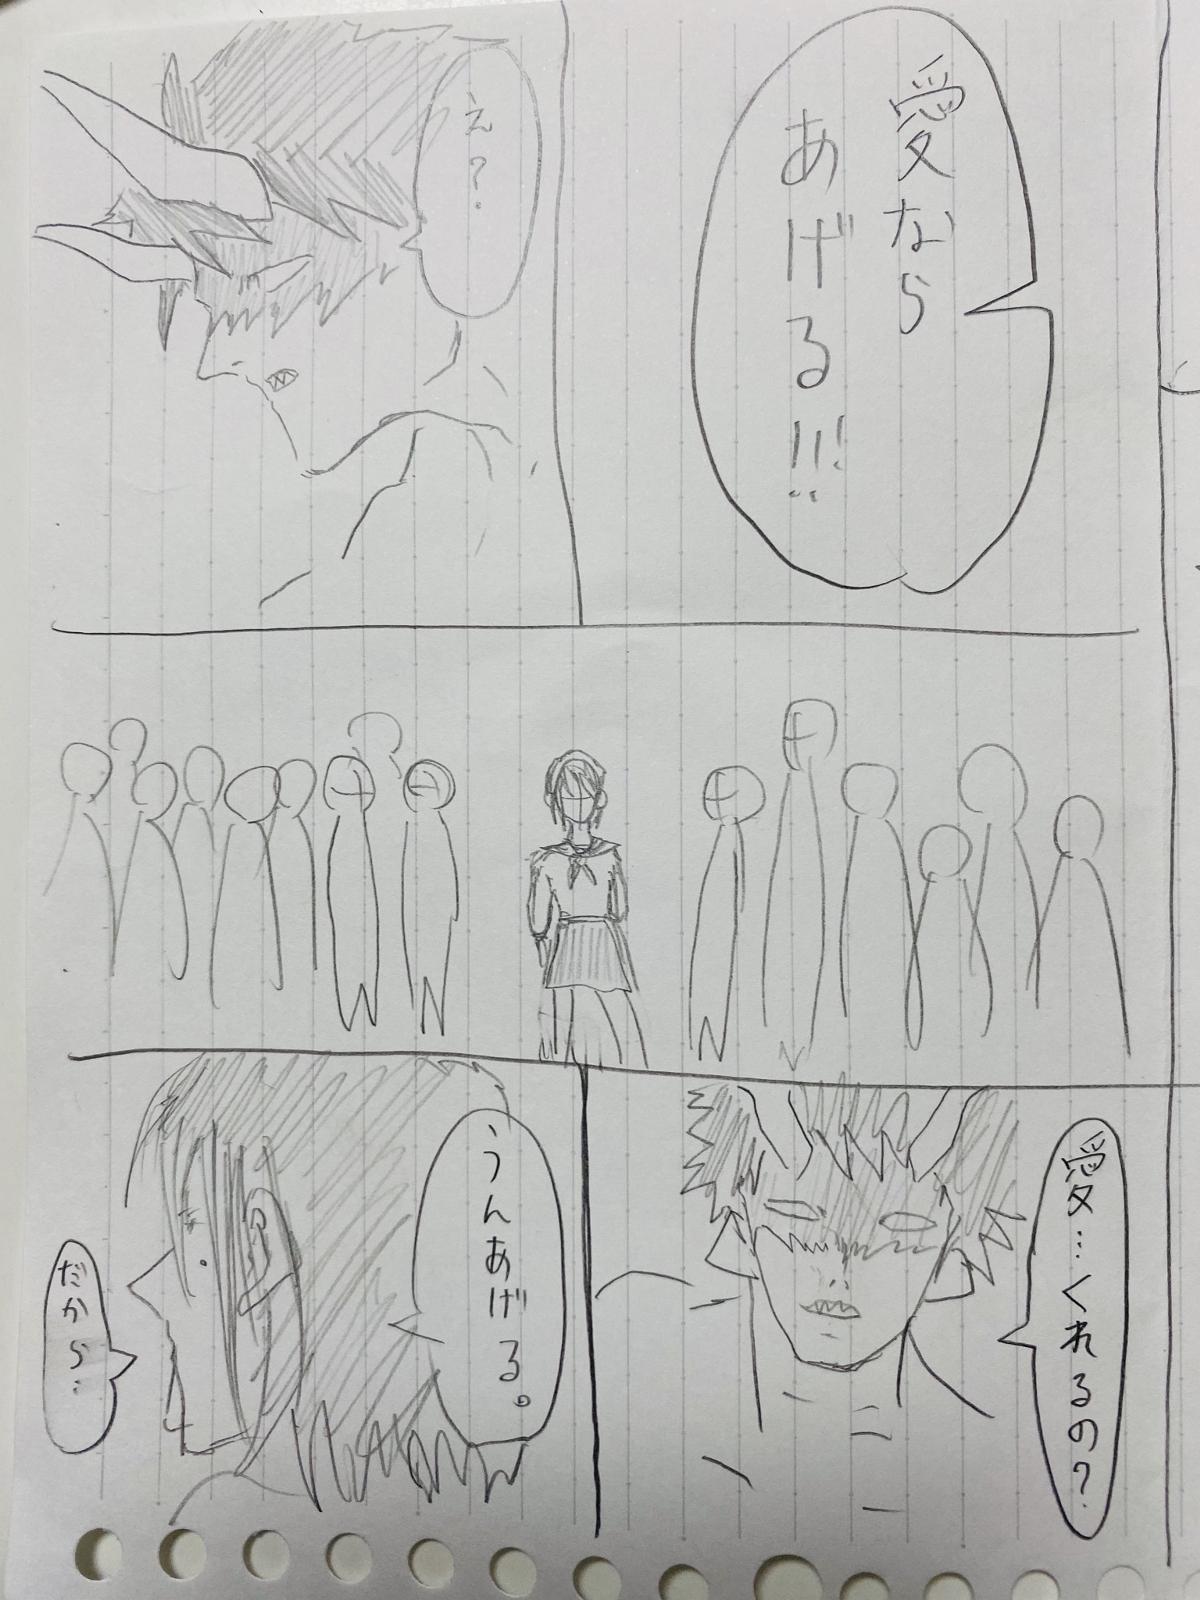 愛なら
あげる!!!
え?
愛…くれるの?
うんあげる。
だから…